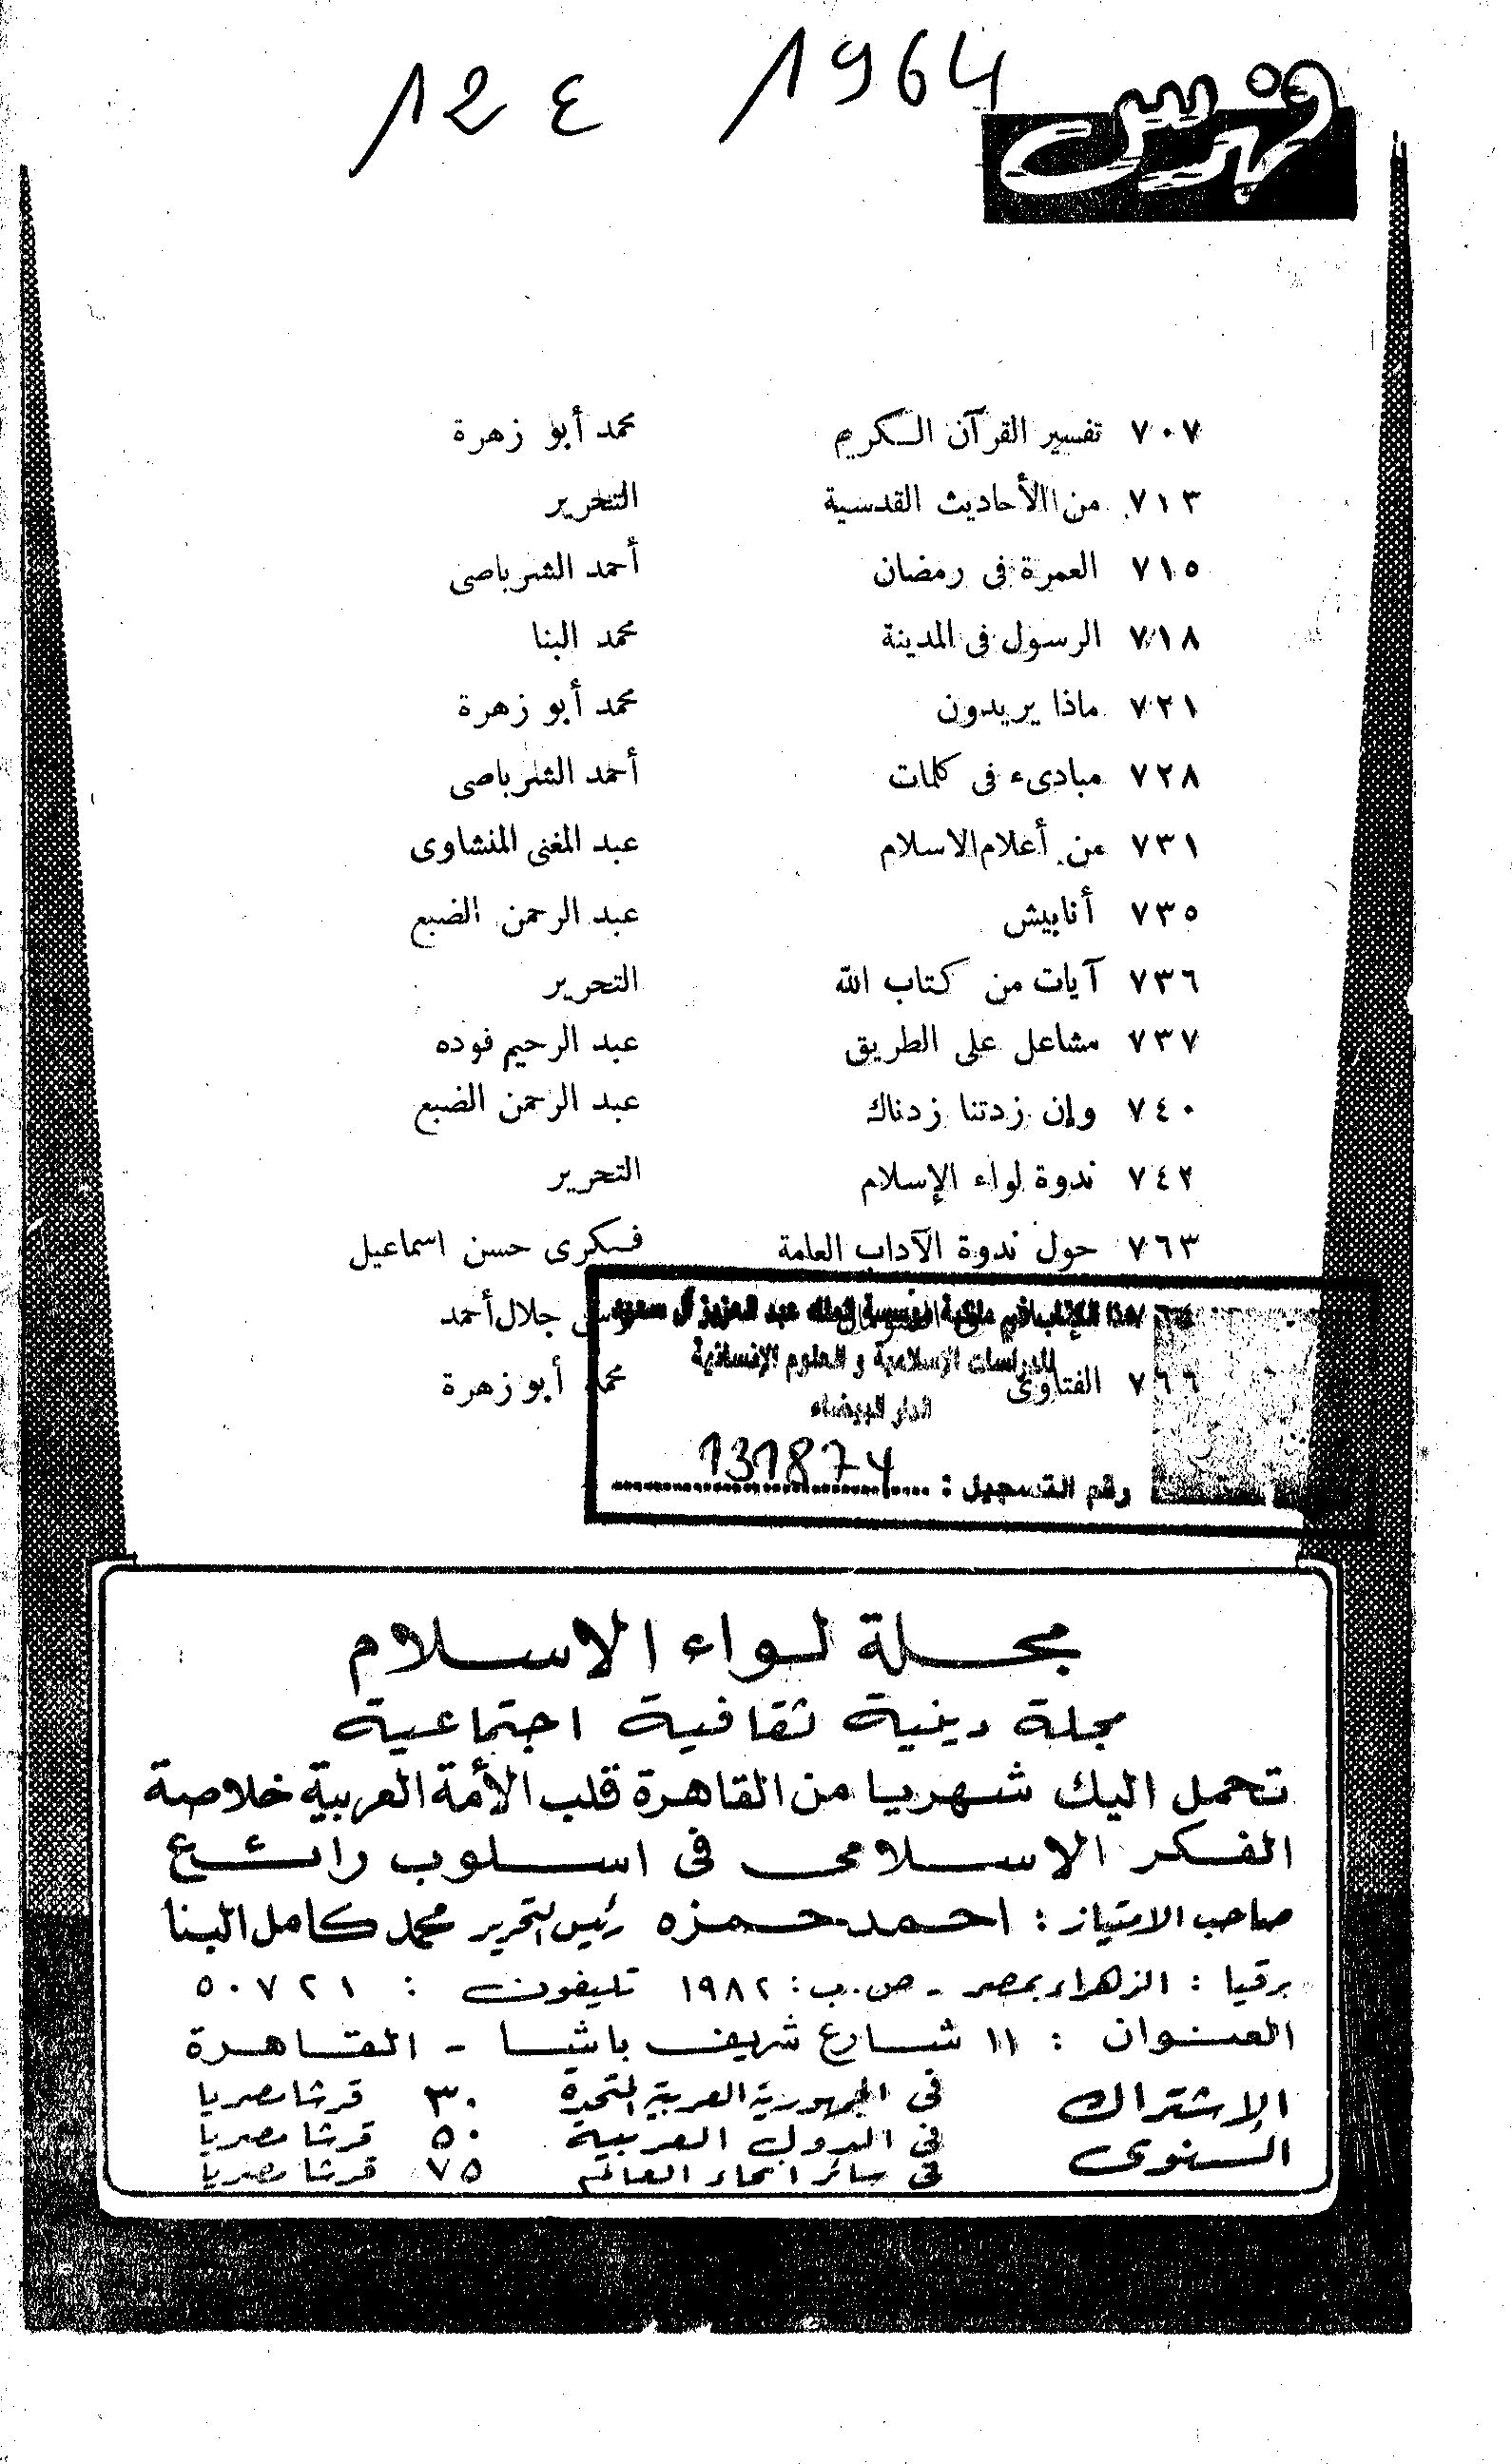 12 ع 1964
فهرس
٧٠٧ تفسير القرآن الكريم محمد أبو زهرة
٧١٣ من الأحاديث القدسية التحرير
٧١٥ العمرة فى رمضان أحمد الشرباصى
٧١٨ الرسول فى المدينة محمد البنا
٧٢١ ماذا يريدون محمد أبو زهرة
٧٢٨ مبادىء فى كلمات أحمد الشرباصى
٧٣١ من أعلام الاسلام عبد المغنى المنشاوى
٧٣٥ أنابيش عبد الرحمن الضبع
٧٣٦ آيات من كتاب الله التحرير
٧٣٧ مشاعل على الطريق عبد الرحيم فوده
٧٤٠ وإن زدتنا زدناك عبد الرحمن الضبع
٧٤٢ ندوة لواء الإسلام التحرير
٧٦٣ حول ندوة الآداب العامة فكرى حسن اسماعيل
٧٦٤ جلال أحمد
٧٦٦ الفتاوى محمد أبو زهرة
هذا الكتاب في ملكية مؤسسة الملك عبد العزيز آل سعود
للدراسات الإسلامية و العلوم الإنسانية
الدار البيضاء
رقم التسجيل : 131874
مجلة لواء الاسلام
مجلة دينية ثقافية اجتماعية
تحمل اليك شهريا من القاهرة قلب الأمة العربية خلاصة
الفكر الاسلامى فى اسلوب رائع
صاحب الامتياز : احمد حمزه رئيس التحرير محمد كامل البنا
برقيا : الزهراء بمصر - ص . ب : ١٩٨٢ تليفون : ٥٠٧٢١
العنوان : ١١ شارع شريف باشا - القاهرة
الاشتراك السنوى
فى الجمهورية العربية المتحدة ٣٠ قرشا مصريا
فى الدول العربية ٥٠ قرشا مصريا
فى سائر انحاء العالم ٧٥ قرشا مصريا